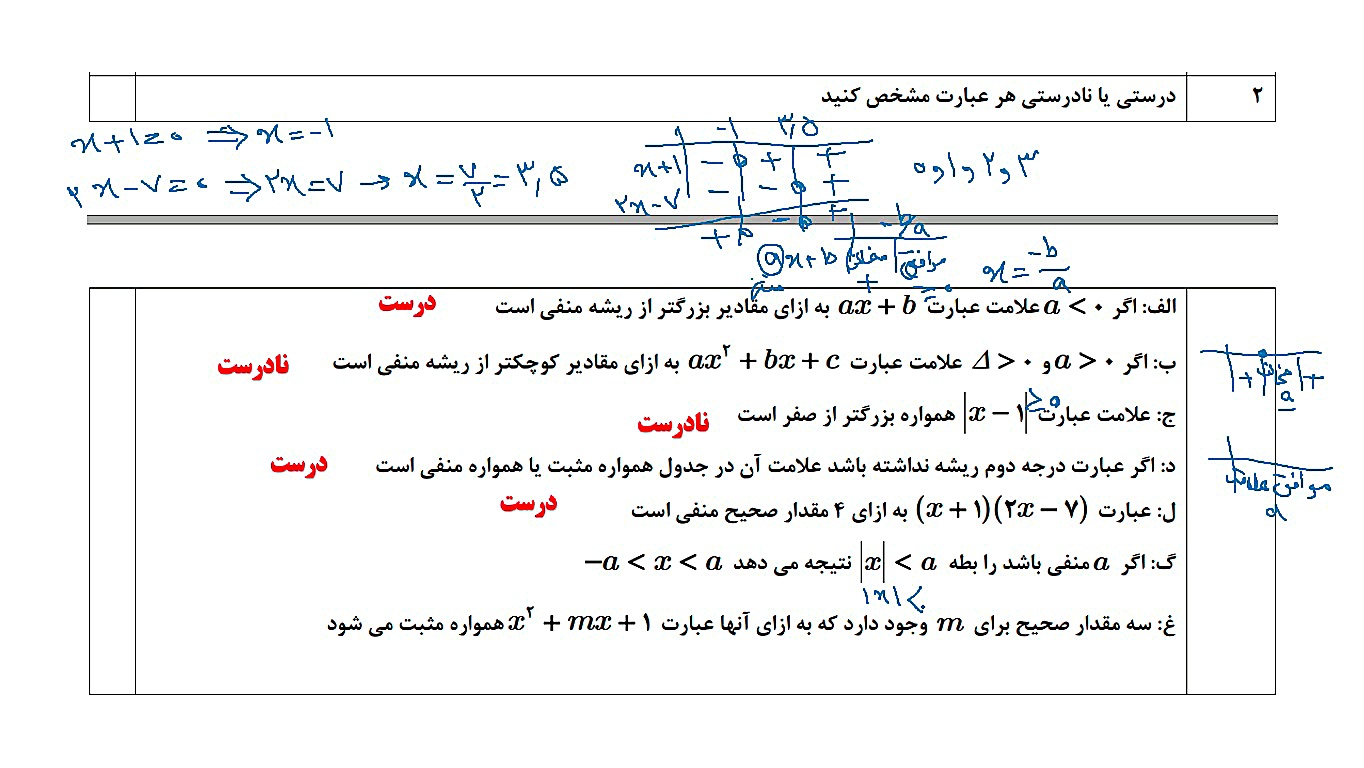 ۲ درستی یا نادرستی هر عبارت مشخص کنید
x+1=0 ⇒ x=-1
-1 ۳,۵
x+1 - 0 + +
۰ و ۱ و ۲ و ۳
۲x-۷=۰ ⇒ ۲x=۷ → x=۷/۲=۳,۵
۲x-۷ - - 0 +
+ 0 - 0 +
-b/a
ax+b مخالف موافق
+ -
x=-b/a
الف: اگر a < ۰ علامت عبارت ax + b به ازای مقادیر بزرگتر از ریشه منفی است درست
ب: اگر a > ۰ و Δ > ۰ علامت عبارت ax² + bx + c به ازای مقادیر کوچکتر از ریشه منفی است نادرست
+ مخالف +
a
ج: علامت عبارت |x − ۱| ≥ 0 همواره بزرگتر از صفر است نادرست
د: اگر عبارت درجه دوم ریشه نداشته باشد علامت آن در جدول همواره مثبت یا همواره منفی است درست
موافق علامت
a
ل: عبارت (x + ۱)(۲x − ۷) به ازای ۴ مقدار صحیح منفی است درست
گ: اگر a منفی باشد را بطه |x| < a نتیجه می دهد −a < x < a
|x| <
غ: سه مقدار صحیح برای m وجود دارد که به ازای آنها عبارت x² + mx + ۱ همواره مثبت می شود